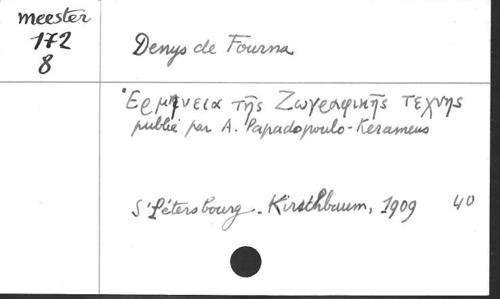 meester
172
8
Denys de Fourna
Ἑρμηνεια τῆς Ζωγραφικῆς τεχνης
publié par A. Papadopoulo-Kerameus
S'Pétersbourg - Kirschbaum, 1909 40